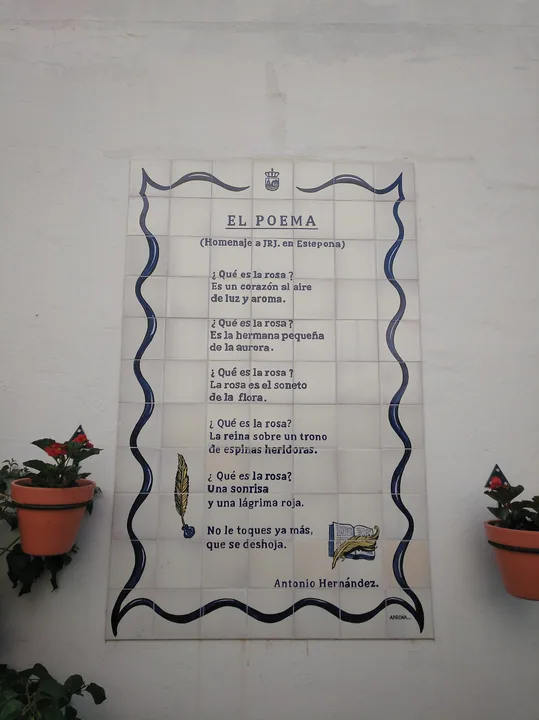 EL POEMA
(Homenaje a JRJ. en Estepona)
¿Qué es la rosa?
Es un corazón al aire
de luz y aroma.
¿Qué es la rosa?
Es la hermana pequeña
de la aurora.
¿Qué es la rosa?
La rosa es el soneto
de la flora.
¿Qué es la rosa?
La reina sobre un trono
de espinas heridoras.
¿Qué es la rosa?
Una sonrisa
y una lágrima roja.
No le toques ya más,
que se deshoja.
Antonio Hernández.